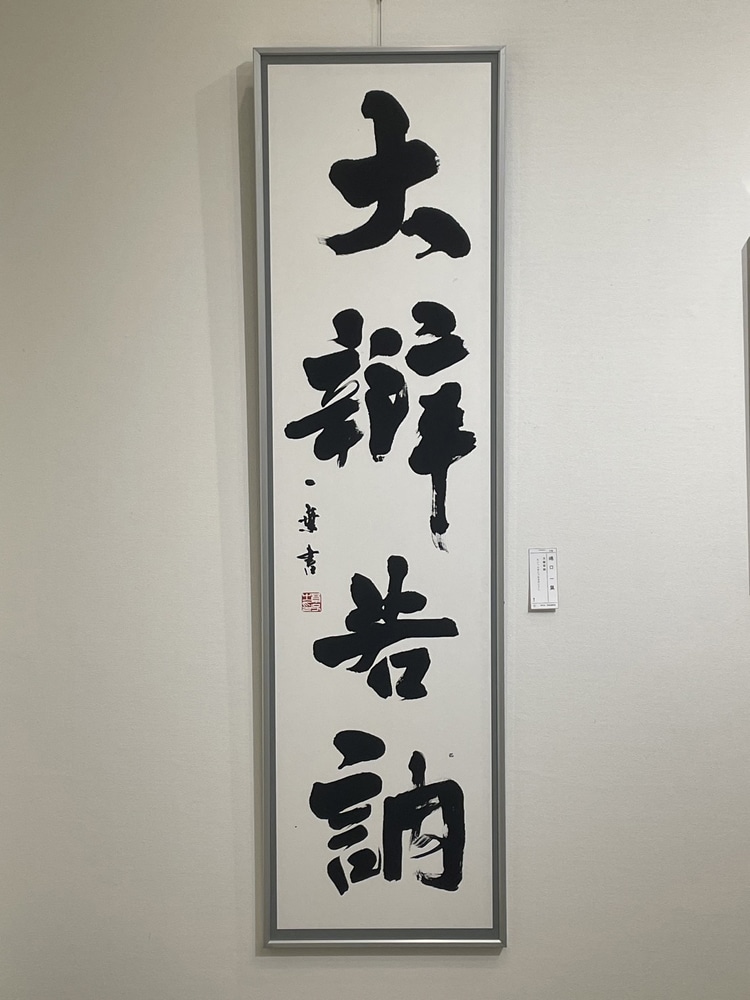 大辯若訥
一葉書